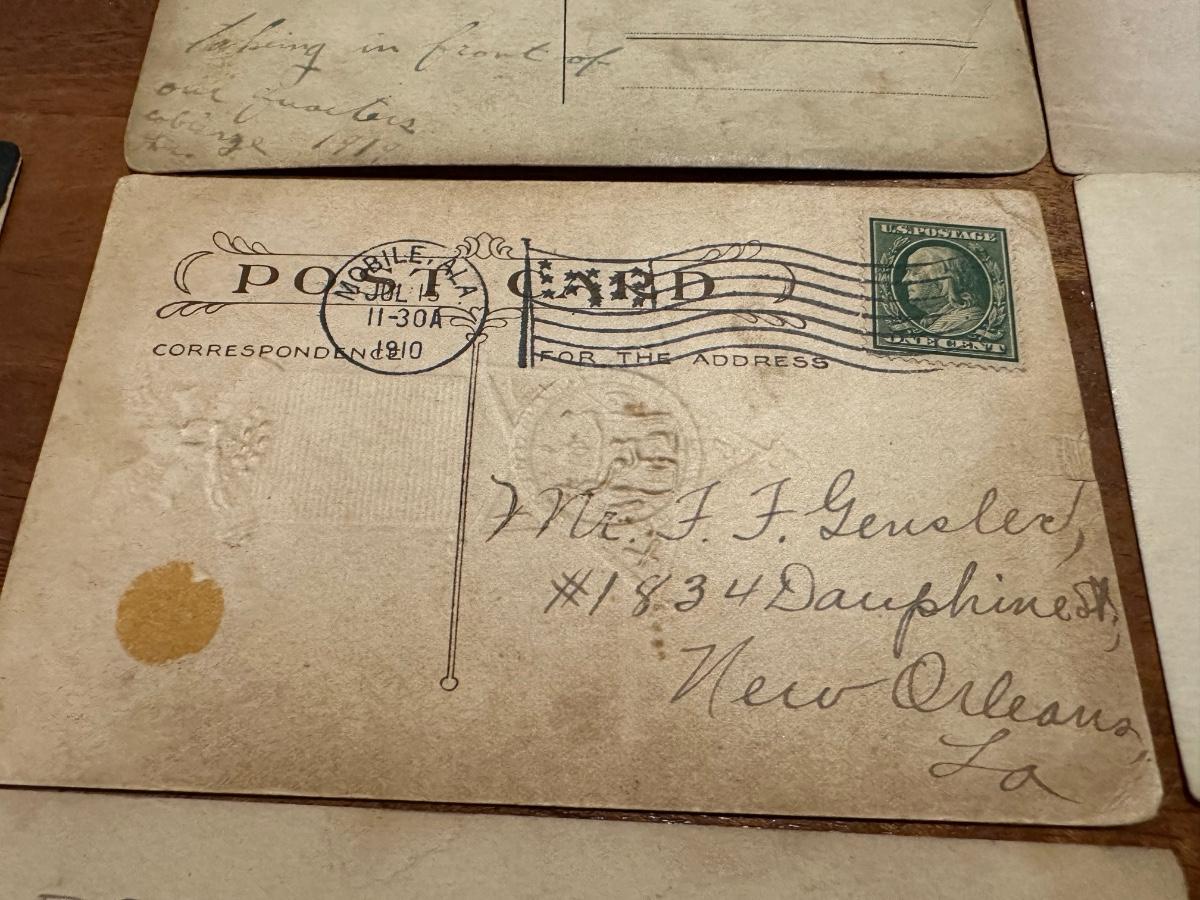 taking in front of
our quarters
1918
POST CARD
MOBILE, ALA
JUL 15
11-30A
1910
U.S. POSTAGE
ONE CENT
CORRESPONDENCE
FOR THE ADDRESS
Mr. F. F. Gensler,
#1834 Dauphine St,
New Orleans,
La